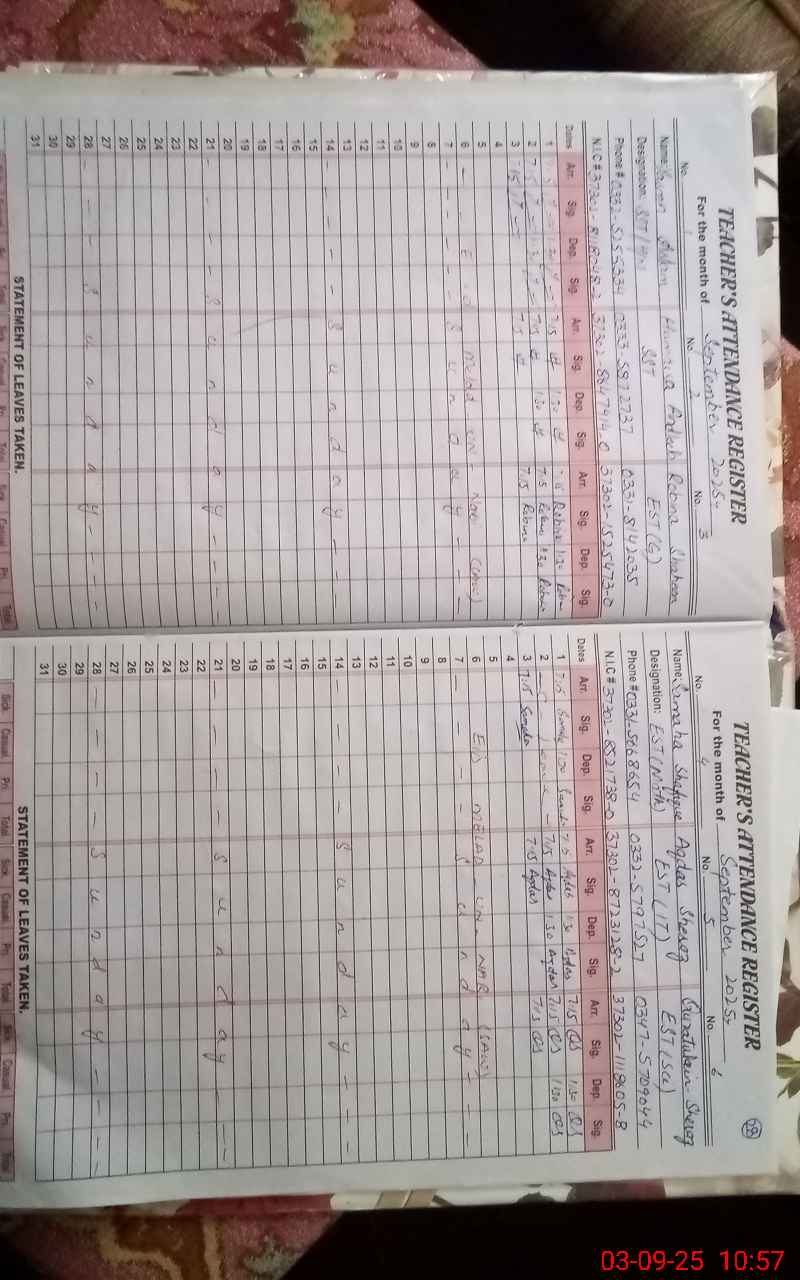 TEACHER'S ATTENDANCE REGISTER
For the month of September 2025
No. 1 No. 2 No. 3
Name: Andleeb Robina Shaheen
Designation: SST SST EST(G)
Phone # 0332-5155334 0333-5912737 0331-8142035
N.I.C # 37302-8847414-0 37302-1525473-0
Dates Arr. Sig. Dep. Sig. Arr. Sig. Dep. Sig. Arr. Sig. Dep. Sig.
1 7:15 1:30 7:15 Robina 1:30
2 7:15 1:30 7:15 Robina 1:30 Robina
3 7:15 7:15 Robina
4
5
6 Eid Melad UN-
7 - - - - S u n d a y - - -
8
9
10
11
12
13
14 - - - - S u n d a y - - -
15
16
17
18
19
20
21 - - - - S u n d a y - - - -
22
23
24
25
26
27
28 - - - - S u n d a y - - - -
29
30
31
STATEMENT OF LEAVES TAKEN.
Total Sick Casual Pri. Total Sick Casual Pri. Total
TEACHER'S ATTENDANCE REGISTER
For the month of September 2025
No. 4 No. 5 No. 6
Name: Samaha Shafique Aqdas Sheraz Quratulain Sheraz
Designation: EST (Math) EST (IT) EST (Sci)
Phone # 0331-5068654 0332-5797527 0347-5709044
N.I.C # 37302-8521738-0 37302-8723128-2 37302-1118605-8
Dates Arr. Sig. Dep. Sig. Arr. Sig. Dep. Sig. Arr. Sig. Dep. Sig.
1 7:15 1:30 7:15 Aqdas 1:30 Aqdas 7:15 QS 1:30 QS
2 7:15 Aqdas 1:30 Aqdas 7:15 QS 1:30 QS
3 7:15 7:15 Aqdas 7:15 QS
4
5
6 EID MELAD-UN-NABI (SAW)
7 - - - - S u n d a y - - -
8
9
10
11
12
13
14 - - - - S u n d a y - - -
15
16
17
18
19
20
21 - - - - S u n d a y - - -
22
23
24
25
26
27
28 - - - - - S u n d a y - - - -
29
30
31
STATEMENT OF LEAVES TAKEN.
Sick Casual Pri. Total Sick Casual Pri. Total Sick Casual Pri. Total
03-09-25 10:57